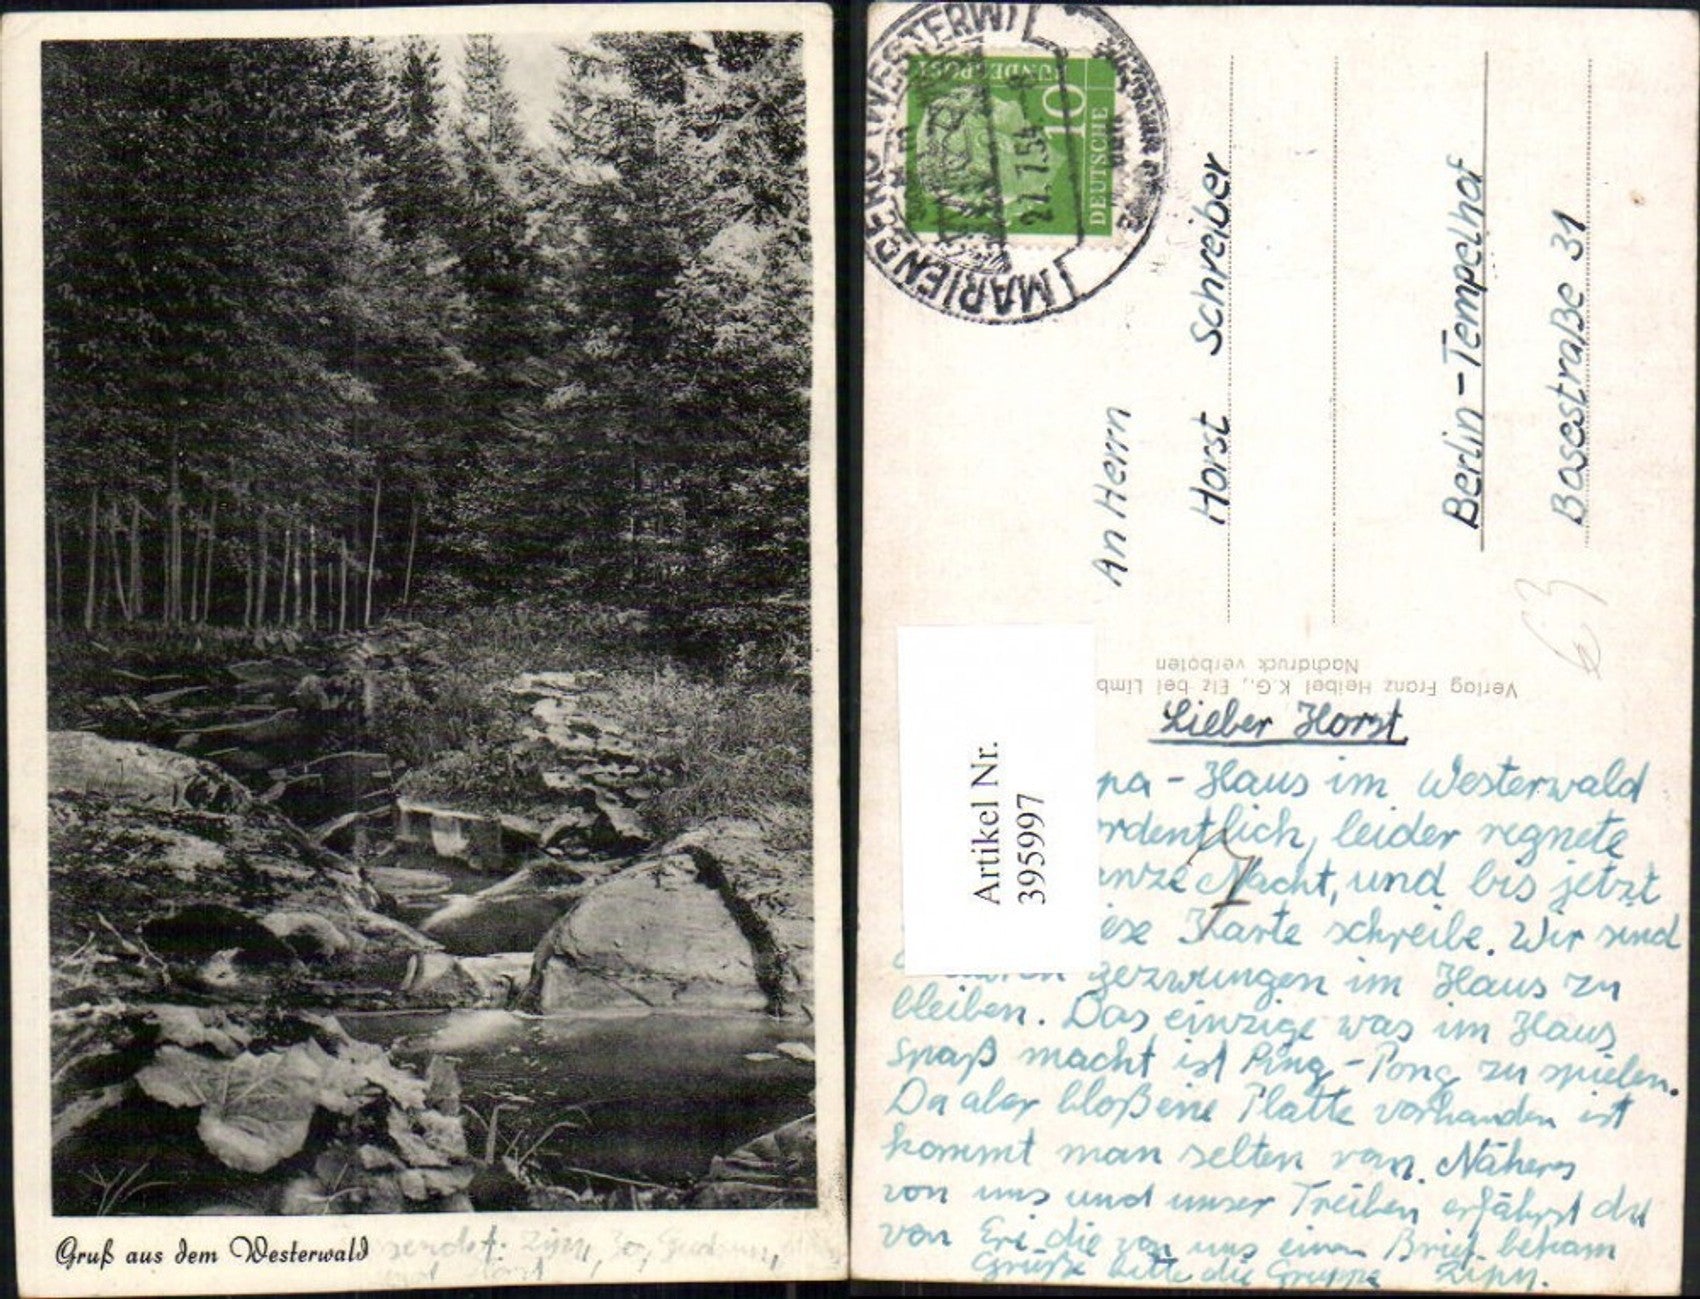 Gruß aus dem Westerwald
MARIENBERG (WESTERW)
21.7.54
DEUTSCHE
BUNDESPOST
10
An Herrn
Horst Schreiber
Berlin-Tempelhof
Bosestraße 31
63
Verlag Franz Heibel K.G., Elz bei Limb
Nachdruck verboten
Artikel Nr.
395997
Lieber Horst
pa-Haus im Westerwald
rdentlich, leider regnete
anze Nacht, und bis jetzt
iese Karte schreibe. Wir sind
gezwungen im Haus zu
bleiben. Das einzige was im Haus
Spaß macht ist Ping-Pong zu spielen.
Da aber bloß eine Platte vorhanden ist
kommt man selten ran. Näheres
von uns und unser Treiben erfährst du
von Eri die von uns einen Brief bekam
Grüße bitte die Gruppe